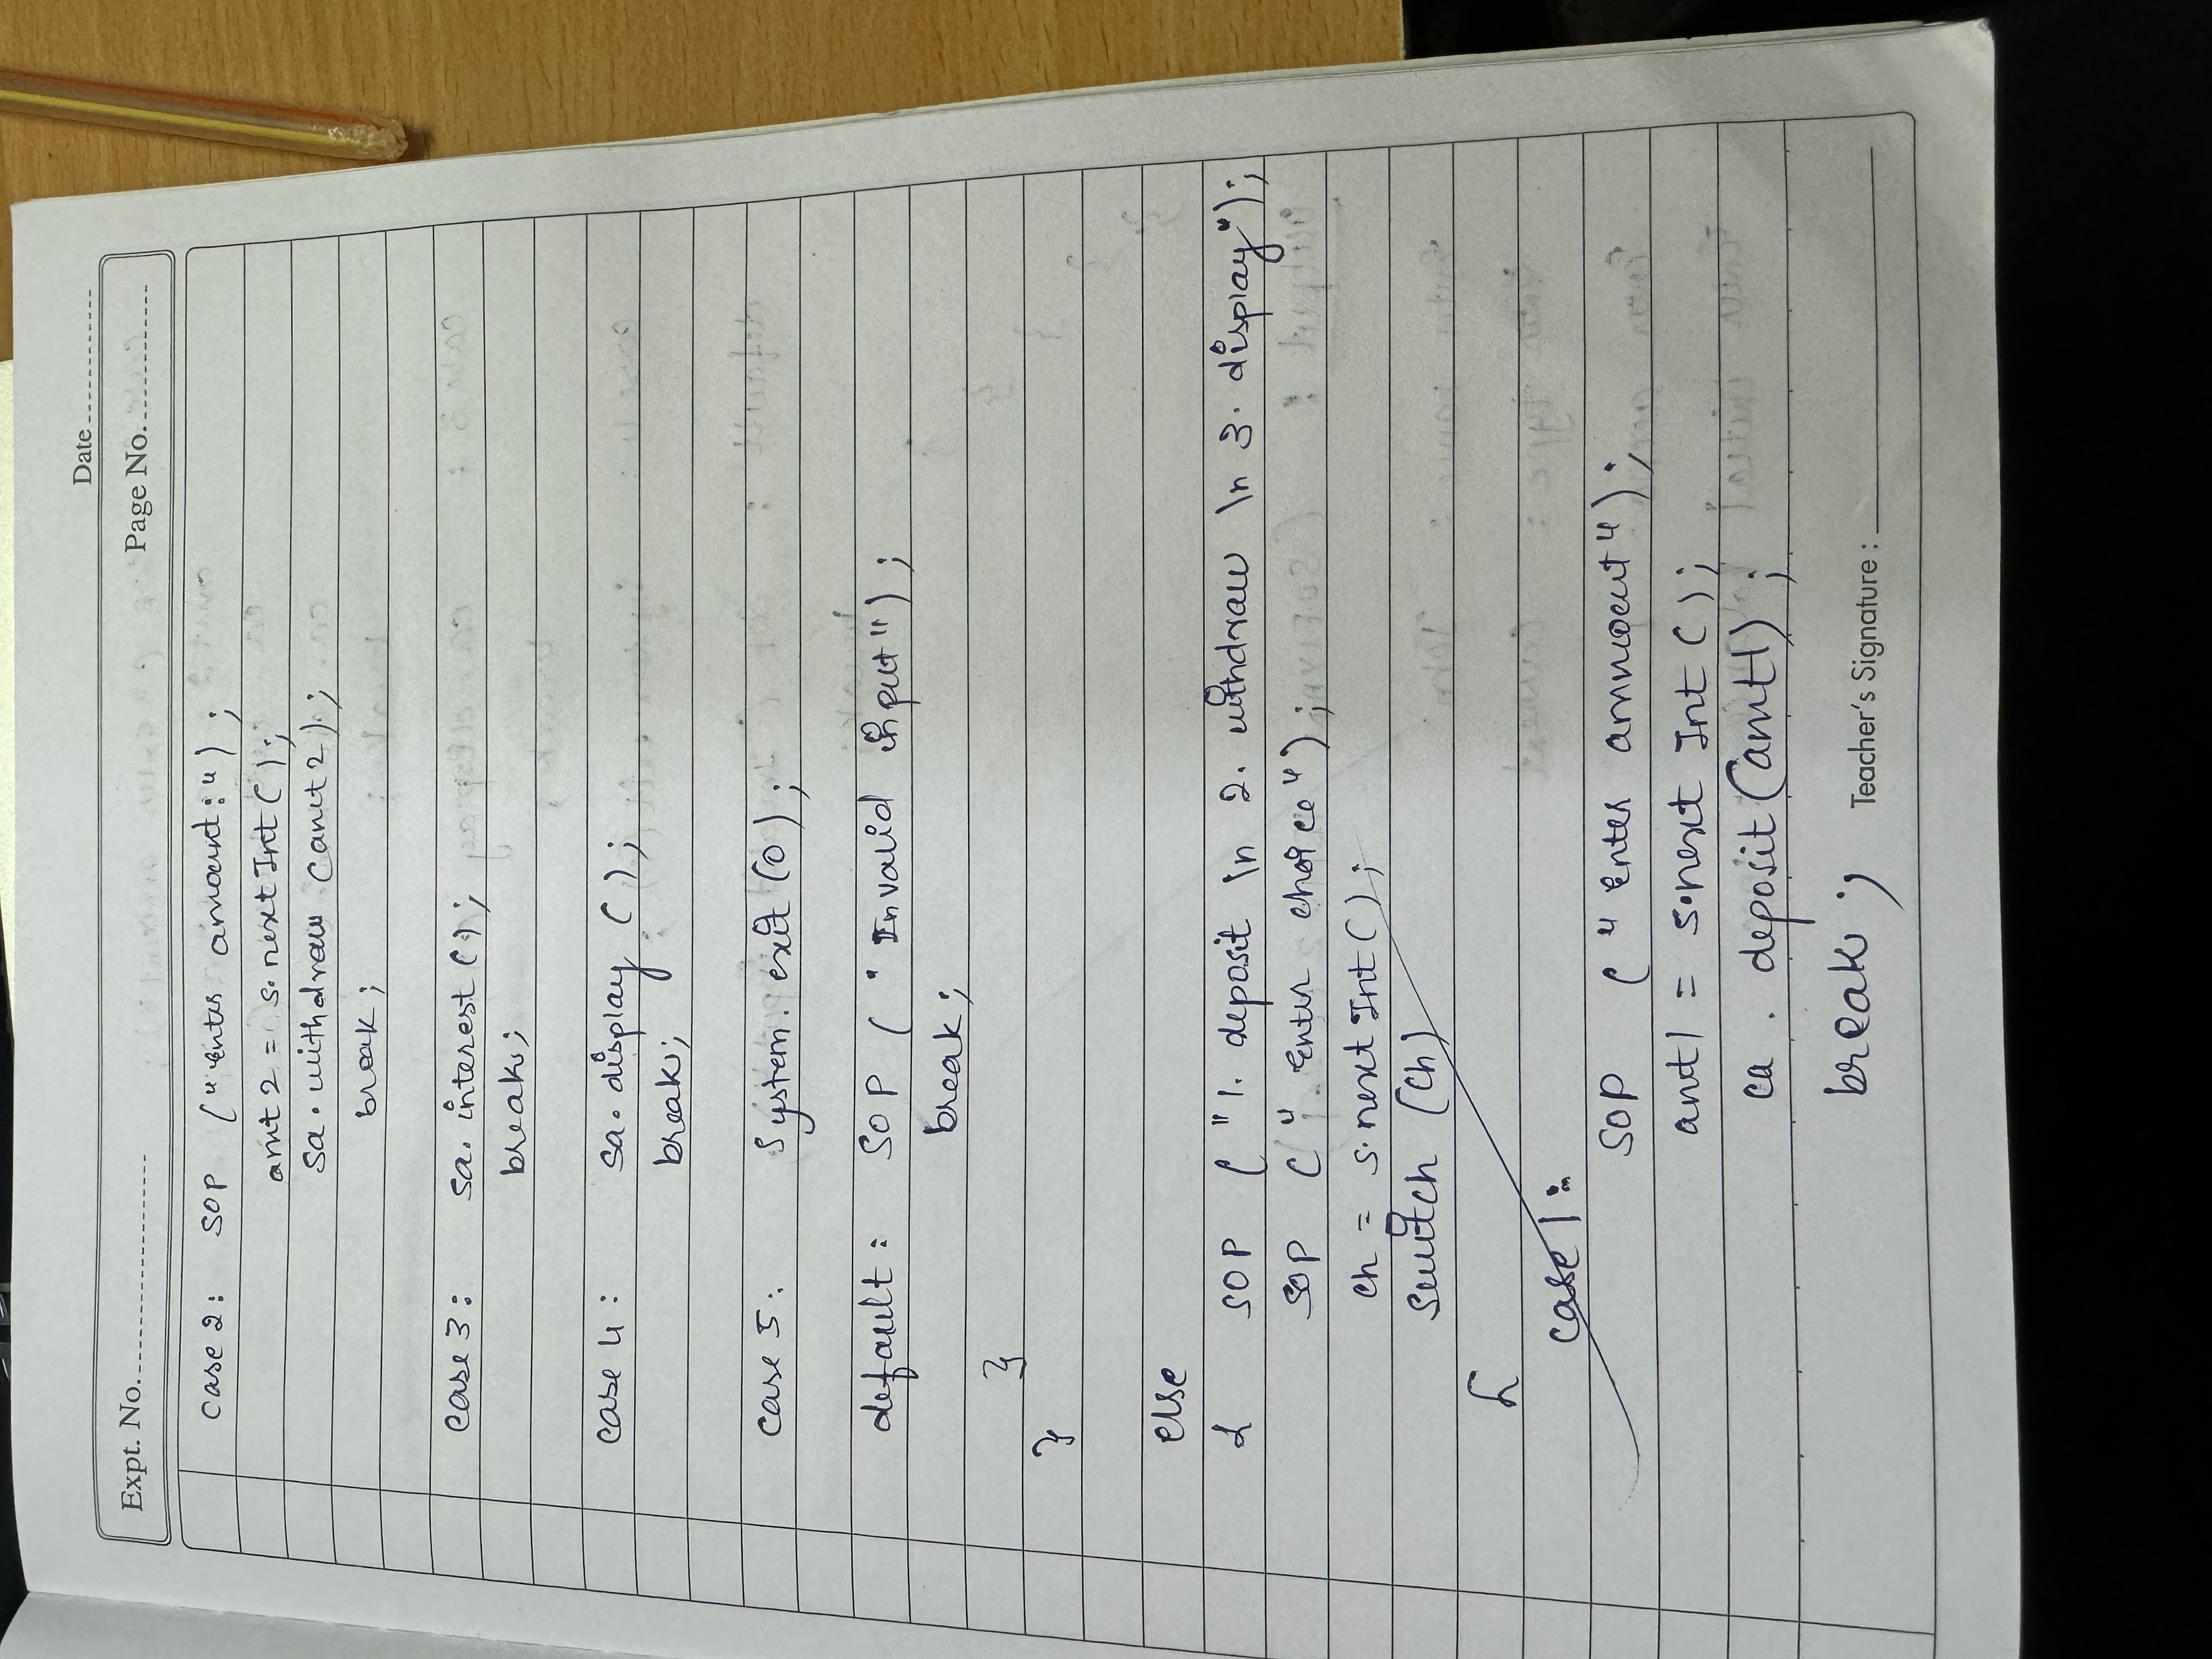 Date
Expt. No.
Page No.
case 2: SOP ("Enter amount:");
amt 2 = s.nextInt();
sa.withdraw (amt 2);
break;
case 3: sa.interest();
break;
case 4: sa.display ();
break;
case 5: System.exit (0);
default: SOP ("Invalid input");
break;
}
}
else
{ SOP ("1. deposit \n 2. withdraw \n 3. display");
SOP ("Enter choice");
ch = s.nextInt();
switch (ch)
{
case 1:
SOP ("Enter ammount");
amt1 = s.next Int();
ca . deposit(amt1);
break;
Teacher's Signature :